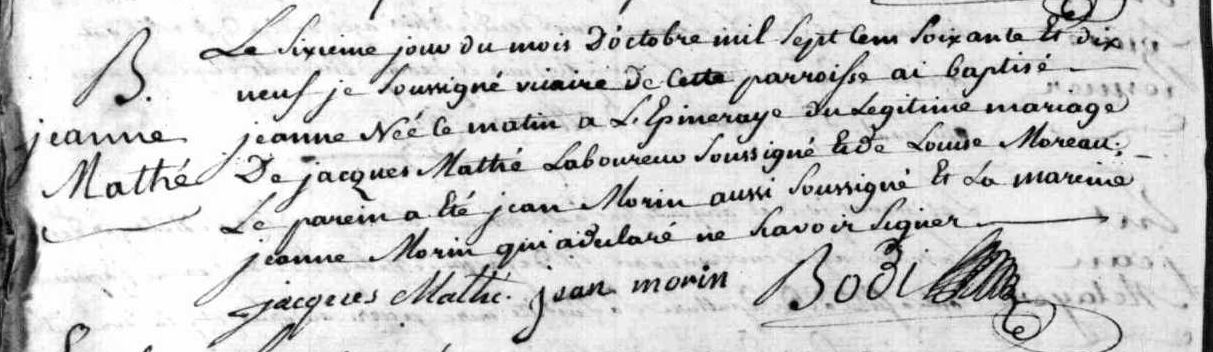 B.
jeanne
Mathé
Le Sixieme jour du mois D'octobre mil Sept Cens Soixante Et dix
neuf je Soussigné vicaire de Cette parroisse ai baptisé
jeanne Néé le matin a L'Epineraye du Legitime mariage
De jacques Mathé Laboureur Soussigné et de Louise Moreau.
Le parein a Eté jean Morin aussi Soussigné Et La mareine
jeanne Morin qui a declaré ne Savoir Signer
jacques Mathé. jean morin Bodi